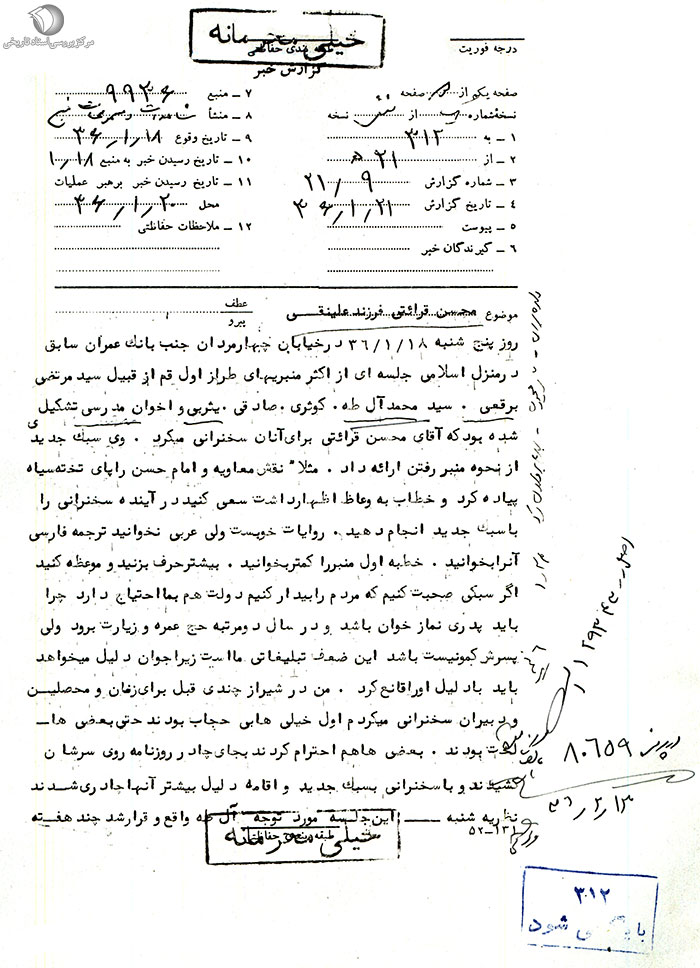 مرکز بررسی اسناد تاریخی
خیلی محرمانه
طبقه بندی حفاظتی
گزارش خبر
درجه فوریت
صفحه یکم از صفحه
نسخه شماره از نسخه
۱ – به ۳۱۲
۲ – از ۲۱ ه‍
۳ – شماره گزارش ۲۱/۹
۴ – تاریخ گزارش ۳۶/۱/۲۱
۵ – پیوست
۶ – گیرندگان خبر
۷ – منبع ۹۹۳۶
۸ – منشأ
۹ – تاریخ وقوع ۳۶/۱/۱۸
۱۰ – تاریخ رسیدن خبر به منبع ۱/۱۸
۱۱ – تاریخ رسیدن خبر برهبر عملیات
محل ۳۶/۱/۲۰
۱۲ – ملاحظات حفاظتی
موضوع محسن قرائتی فرزند علینقی
عطف
پیرو
روز پنج شنبه ۳۶/۱/۱۸ درخیابان چهارمردان جنب بانک عمران سابق
درمنزل اسلامی جلسه ای از اکثر منبریهای طراز اول قم از قبیل سید مرتضی
برقعی . سید محمد آل طه. کوثری. صادقی. یثربی و اخوان مدرسی تشکیل
شده بود که آقای محسن قرائتی برای آنان سخنرانی میکرد . وی سبک جدیدی
از نحوه منبر رفتن ارائه داد . مثلا" نقش معاویه و امام حسن را پای تخته سیاه
پیاده کرد و خطاب به وعاظ اظهارداشت سعی کنید در آینده سخنرانی را
باسبک جدید انجام دهید. روایات خوبست ولی عربی نخوانید ترجمه فارسی
آنرا بخوانید . خطبه اول منبررا کمتر بخوانید . بیشتر حرف بزنید و موعظه کنید
اگر سبکی صحبت کنیم که مردم را بیدار کنیم دولت هم بما احتیاج دارد چرا
باید پدری نماز خوان باشد و در سال دو مرتبه حج عمره و زیارت برود ولی
پسرش کمونیست باشد این ضعف تبلیغاتی ما است زیرا جوان دلیل میخواهد
باید با دلیل اورا قانع کرد . من در شیراز چندی قبل برای زنان و محصلین
و دبیران سخنرانی میکردم اول خیلی هابی حجاب بودند حتی بعضی ها
لخت بودند . بعضی هاهم احترام کردند بجای چادر روزنامه روی سرشان
کشیدند و باسخنرانی بسبک جدید و اقامه دلیل بیشتر آنها چادری شدند
نظریه شنبه ـــ این جلسه مورد توجه آل طه واقع و قرارشد چند هفته
۵۲–۱۳۱
خیلی محرمانه
طبقه بندی حفاظتی
۸۰۶۵۹
۳۶/۲/۱۳
۳۱۲
بایگانی شود